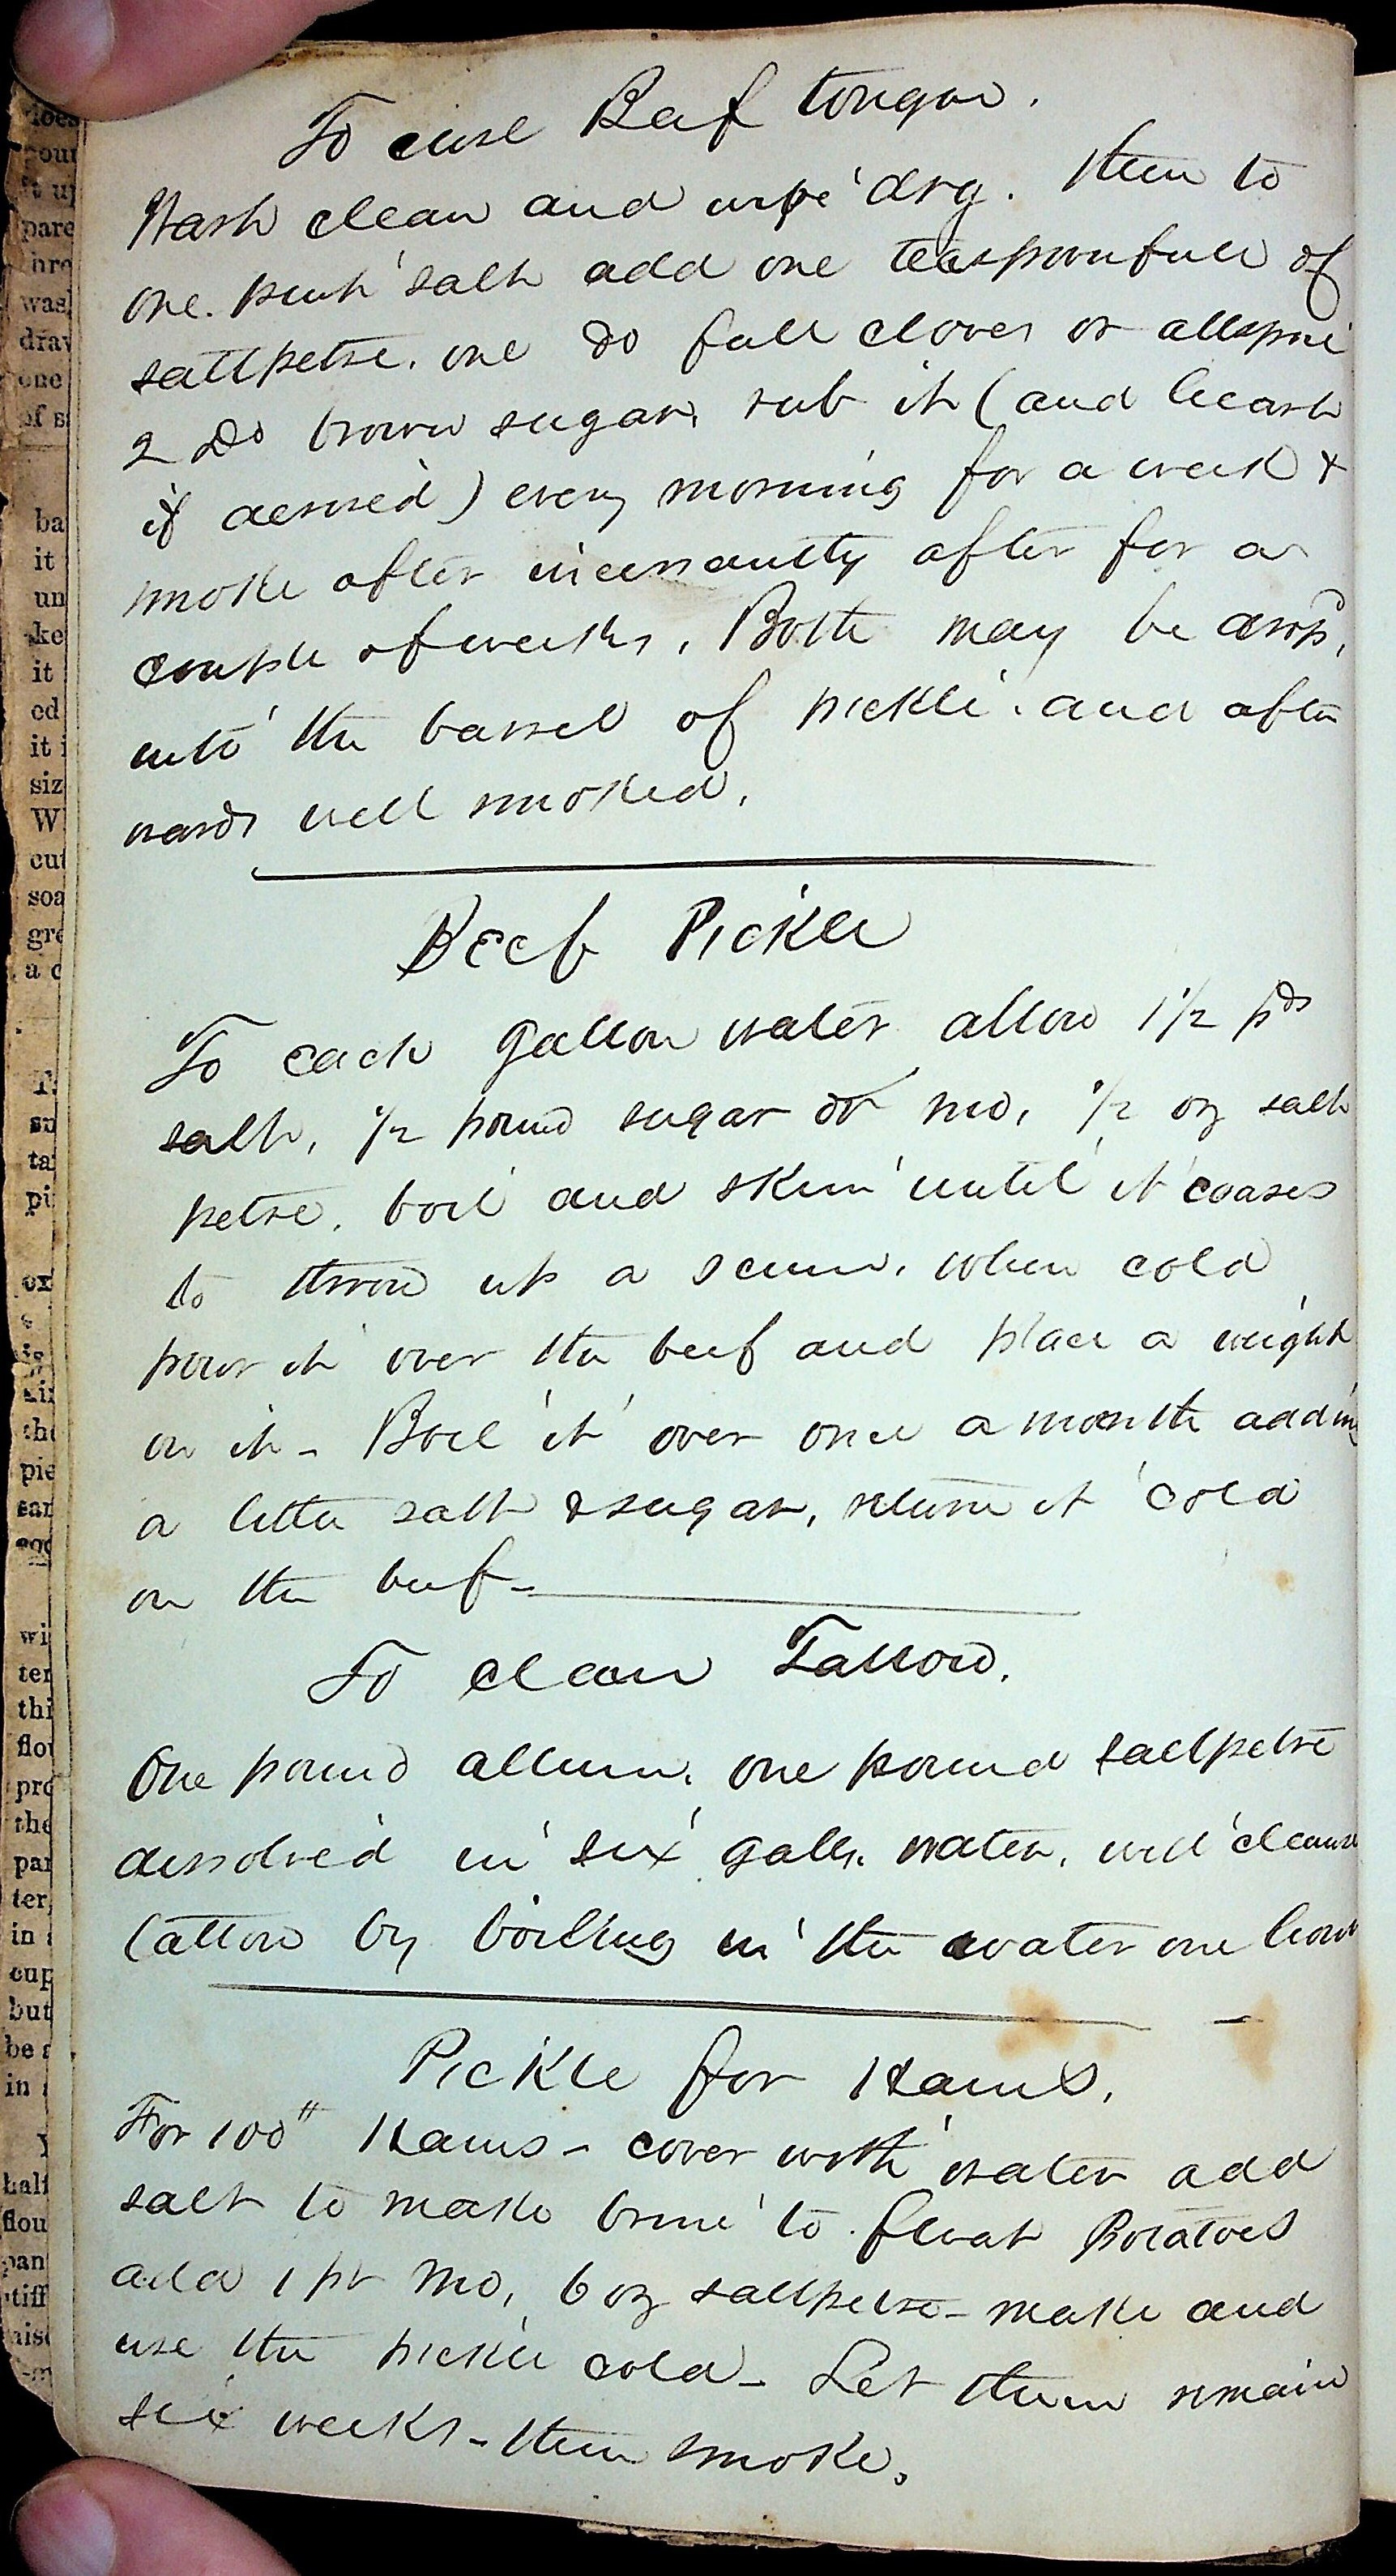 To cure Beef tongue.
Wash clean and wipe dry. Then to
one. pint salt add one teaspoonfull of
saltpetre. one do full cloves or allspice
2 Do brown sugar, rub it (and heart
if desired) every morning for a week &
smoke after incessantly after for a
couple of weeks. Both may be drop'd
into the barrel of pickle. and after
wards well smoked.
Beef Pickle
To each gallon water allow 1 1/2 pds
salt, 1/2 pound sugar or mo, 1/2 oz salt
petre, boil and skim until it ceases
to throw up a scum. when cold
pour it over the beef and place a weight
on it - Boil it over once a month adding
a little salt & sugar, return it cold
on the beef -
To clean Tallow.
One pound allum, one pound saltpetre
dissolved in six galls. water, will cleanse
tallow by boiling in the water one hour
Pickle for Hams.
For 100# Hams - cover with water add
salt to make brine to float Potatoes
add 1 pt Mo, 6 oz saltpetre - make and
use the pickle cold - Let them remain
six weeks - then smoke.